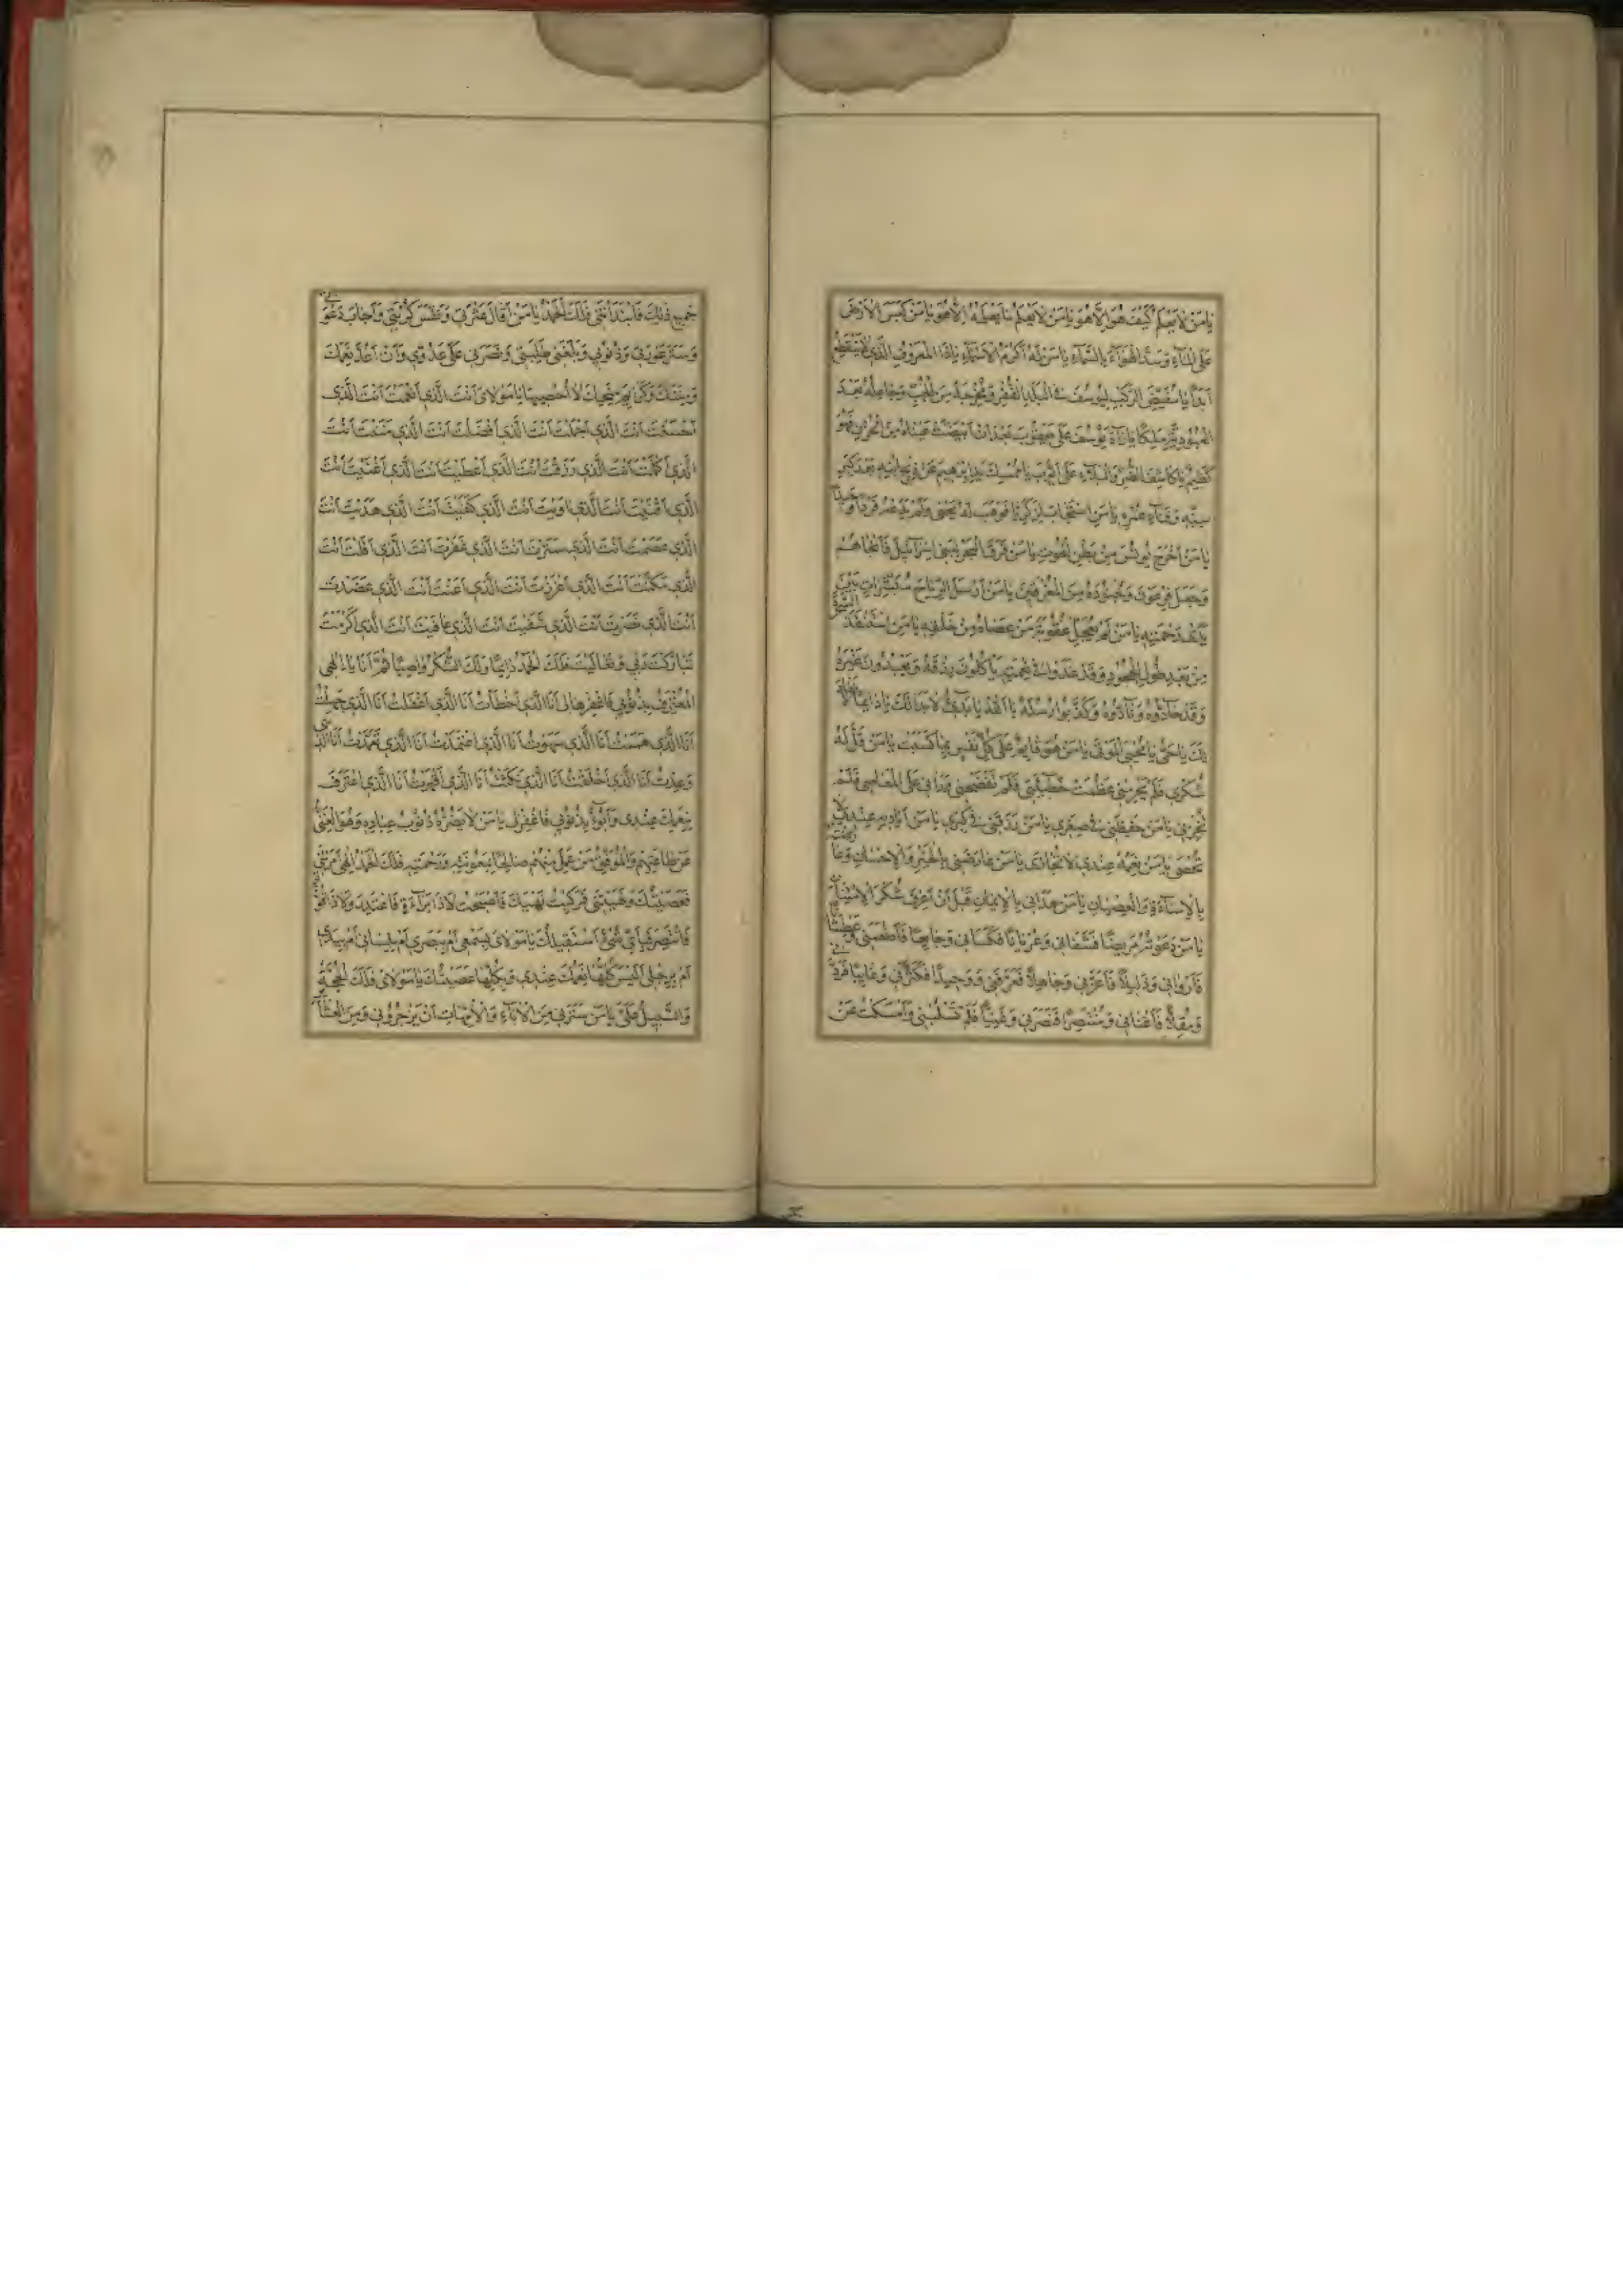 يا مَنْ لا يَعْلَمُ كَيْفَ هُوَ اِلاَّ هُوَ يا مَنْ لا يَعْلَمُ ما يَعْلَمُهُ اِلاَّ هُوَ يا مَنْ كَبَسَ الْاَرْضَ
عَلَى الْمآءِ وَسَدَّ الْهَوآءَ بِالسَّمآءِ يا مَنْ لَهُ اَكْرَمُ الْاَسْمآءِ يا ذَا الْمَعْرُوفِ الَّذي لا يَنْقَطِعُ
اَبَدًا يا مُقَيِّضَ الرَّكْبِ لِيُوسُفَ فِي الْبَلَدِ الْقَفْرِ وَمُخْرِجَهُ مِنَ الْجُبِّ وَجاعِلَهُ بَعْدَ
الْعُبُودِيَّةِ مَلِكًا يا رآدَّ يُوسُفَ عَلى يَعْقُوبَ بَعْدَ اَنِ ابْيَضَّتْ عَيْناهُ مِنَ الْحُزْنِ فَهُوَ
كَظيمٌ يا كاشِفَ الضُّرِّ وَالْبَلآءِ عَنْ اَيُّوبَ يا مُمْسِكَ يَدِ اِبْرهيمَ عَنْ ذَبْحِ ابْنِهِ بَعْدَ كِبَرِ
سِنِّهِ وَفَنآءِ عُمْرِهِ يا مَنِ اسْتَجابَ لِزَكَرِيّا فَوَهَبَ لَهُ يَحْيى وَلَمْ يَدَعْهُ فَرْدًا وَحيدًا
يا مَنْ اَخْرَجَ يُونُسَ مِنْ بَطْنِ الْحُوتِ يا مَنْ فَرَقَ الْبَحْرَ لِبَني اِسْرآئيلَ فَاَنْجاهُمْ
وَجَعَلَ فِرْعَوْنَ وَجُنُودَهُ مِنَ الْمُغْرَقينَ يا مَنْ اَرْسَلَ الرِّياحَ مُبَشِّراتٍ بَيْنَ
يَدَيْ رَحْمَتِهِ يا مَنْ لَمْ يَعْجَلْ عَلى مَنْ عَصاهُ مِنْ خَلْقِهِ يا مَنِ اسْتَنْقَذَ السَّحَرَةَ
مِنْ بَعْدِ طُولِ الْجُحُودِ وَقَدْ غَدَوْا في نِعْمَتِهِ يَأْكُلُونَ رِزْقَهُ وَيَعْبُدُونَ غَيْرَهُ
وَقَدْ حآدُّوهُ وَنآدُّوهُ وَكَذَّبُوا رُسُلَهُ يا اَللهُ يا بَديءُ لا بَدْءَ لَكَ يا دآئِمًا لا نَفادَ
لَكَ يا حَيُّ يا مُحْيِيَ الْمَوْتى يا مَنْ هُوَ قآئِمٌ عَلى كُلِّ نَفْسٍ بِما كَسَبَتْ يا مَنْ قَلَّ لَهُ
شُكْري فَلَمْ يَحْرِمْني وَعَظُمَتْ خَطيئَتي فَلَمْ يَفْضَحْني وَرَآني عَلَى الْمَعاصي فَلَمْ
يَخْذُلْني يا مَنْ حَفِظَني في صِغَري يا مَنْ رَزَقَني في كِبَري يا مَنْ اَياديهِ عِنْدي لا
تُحْصى يا مَنْ نِعَمُهُ عِنْدي لا تُجازى يا مَنْ عارَضَني بِالْخَيْرِ وَالْاِحْسانِ وَعارَضْتُهُ
بِالْاِسآءَةِ وَالْعِصْيانِ يا مَنْ هَداني بِالْايمانِ قَبْلَ اَنْ اَعْرِفَ شُكْرَ الْاِمْتِنانِ
يا مَنْ دَعَوْتُهُ مَريضًا فَشَفاني وَعُرْيانًا فَكَساني وَجآئِعًا فَاَطْعَمَني وَعَطْشانًا
فَاَرْواني وَذَليلًا فَاَعَزَّني وَجاهِلًا فَعَرَّفَني وَوَحيدًا فَكَثَّرَني وَغآئِبًا فَرَدَّني
وَمُقِلًّا فَاَغْناني وَمُنْتَصِرًا فَنَصَرَني وَغَنِيًّا فَلَمْ يَسْلُبْني وَاَمْسَكْتُ عَنْ
جَميعِ ذلِكَ فَابْتَدَأَني فَلَكَ الْحَمْدُ يا مَنْ اَقالَ عَثْرَتي وَنَفَّسَ كُرْبَتي وَاَجابَ دَعْوَتي
وَسَتَرَ عَوْرَتي وَذُنُوبي وَبَلَّغَني طَلِبَتي وَنَصَرَني عَلى عَدُوّي وَاِنْ اَعُدَّ نِعَمَكَ
وَمِنَنَكَ وَكَرآئِمَ مِنَحِكَ لا اُحْصيها يا مَوْلايَ اَنْتَ الَّذي اَنْعَمْتَ اَنْتَ الَّذي
اَحْسَنْتَ اَنْتَ الَّذي اَجْمَلْتَ اَنْتَ الَّذي اَفْضَلْتَ اَنْتَ الَّذي مَنَنْتَ اَنْتَ
الَّذي اَكْمَلْتَ اَنْتَ الَّذي رَزَقْتَ اَنْتَ الَّذي اَعْطَيْتَ اَنْتَ الَّذي اَغْنَيْتَ اَنْتَ
الَّذي اَقْنَيْتَ اَنْتَ الَّذي اوَيْتَ اَنْتَ الَّذي كَفَيْتَ اَنْتَ الَّذي هَدَيْتَ اَنْتَ
الَّذي عَصَمْتَ اَنْتَ الَّذي سَتَرْتَ اَنْتَ الَّذي غَفَرْتَ اَنْتَ الَّذي اَقَلْتَ اَنْتَ
الَّذي مَكَّنْتَ اَنْتَ الَّذي اَعْزَزْتَ اَنْتَ الَّذي اَعَنْتَ اَنْتَ الَّذي عَضَدْتَ
اَنْتَ الَّذي نَصَرْتَ اَنْتَ الَّذي شَفَيْتَ اَنْتَ الَّذي عافَيْتَ اَنْتَ الَّذي اَكْرَمْتَ
تَبارَكْتَ رَبّي وَتَعالَيْتَ فَلَكَ الْحَمْدُ دآئِمًا وَلَكَ الشُّكْرُ واصِبًا ثُمَّ اَنَا يا اِلهي
الْمُعْتَرِفُ بِذُنُوبي فَاغْفِرْها لي اَنَا الَّذي اَخْطَأْتُ اَنَا الَّذي اَغْفَلْتُ اَنَا الَّذي جَهِلْتُ
اَنَا الَّذي هَمَمْتُ اَنَا الَّذي سَهَوْتُ اَنَا الَّذي اعْتَمَدْتُ اَنَا الَّذي تَعَمَّدْتُ اَنَا الَّذي
وَعَدْتُ اَنَا الَّذي اَخْلَفْتُ اَنَا الَّذي نَكَثْتُ اَنَا الَّذي اَقْرَرْتُ اَنَا الَّذي اعْتَرَفْتُ
بِنِعْمَتِكَ عِنْدي وَاَبُوءُ بِذُنُوبي فَاغْفِرْ لي يا مَنْ لا تَضُرُّهُ ذُنُوبُ عِبادِهِ وَهُوَ الْغَنِيُّ
عَنْ طاعَتِهِمْ وَالْمُوَفِّقُ مَنْ عَمِلَ مِنْهُمْ صالِحًا بِمَعُونَتِهِ وَرَحْمَتِهِ فَلَكَ الْحَمْدُ اِلهي اَمَرْتَني
فَعَصَيْتُكَ وَنَهَيْتَني فَارْتَكَبْتُ نَهْيَكَ فَاَصْبَحْتُ لا ذا بَرآءَةٍ فَاَعْتَذِرَ وَلا ذا قُوَّةٍ
فَاَنْتَصِرَ فَبِاَيِّ شَيْءٍ اَسْتَقْبِلُكَ يا مَوْلايَ اَبِسَمْعي اَمْ بِبَصَري اَمْ بِلِساني اَمْ بِيَدي
اَمْ بِرِجْلي اَلَيْسَ كُلُّها نِعَمَكَ عِنْدي وَبِكُلِّها عَصَيْتُكَ يا مَوْلايَ فَلَكَ الْحُجَّةُ
وَالسَّبيلُ عَلَيَّ يا مَنْ سَتَرَني مِنَ الْآبآءِ وَالْاُمَّهاتِ اَنْ يَزْجُرُوني وَمِنَ الْعَشآئِرِ